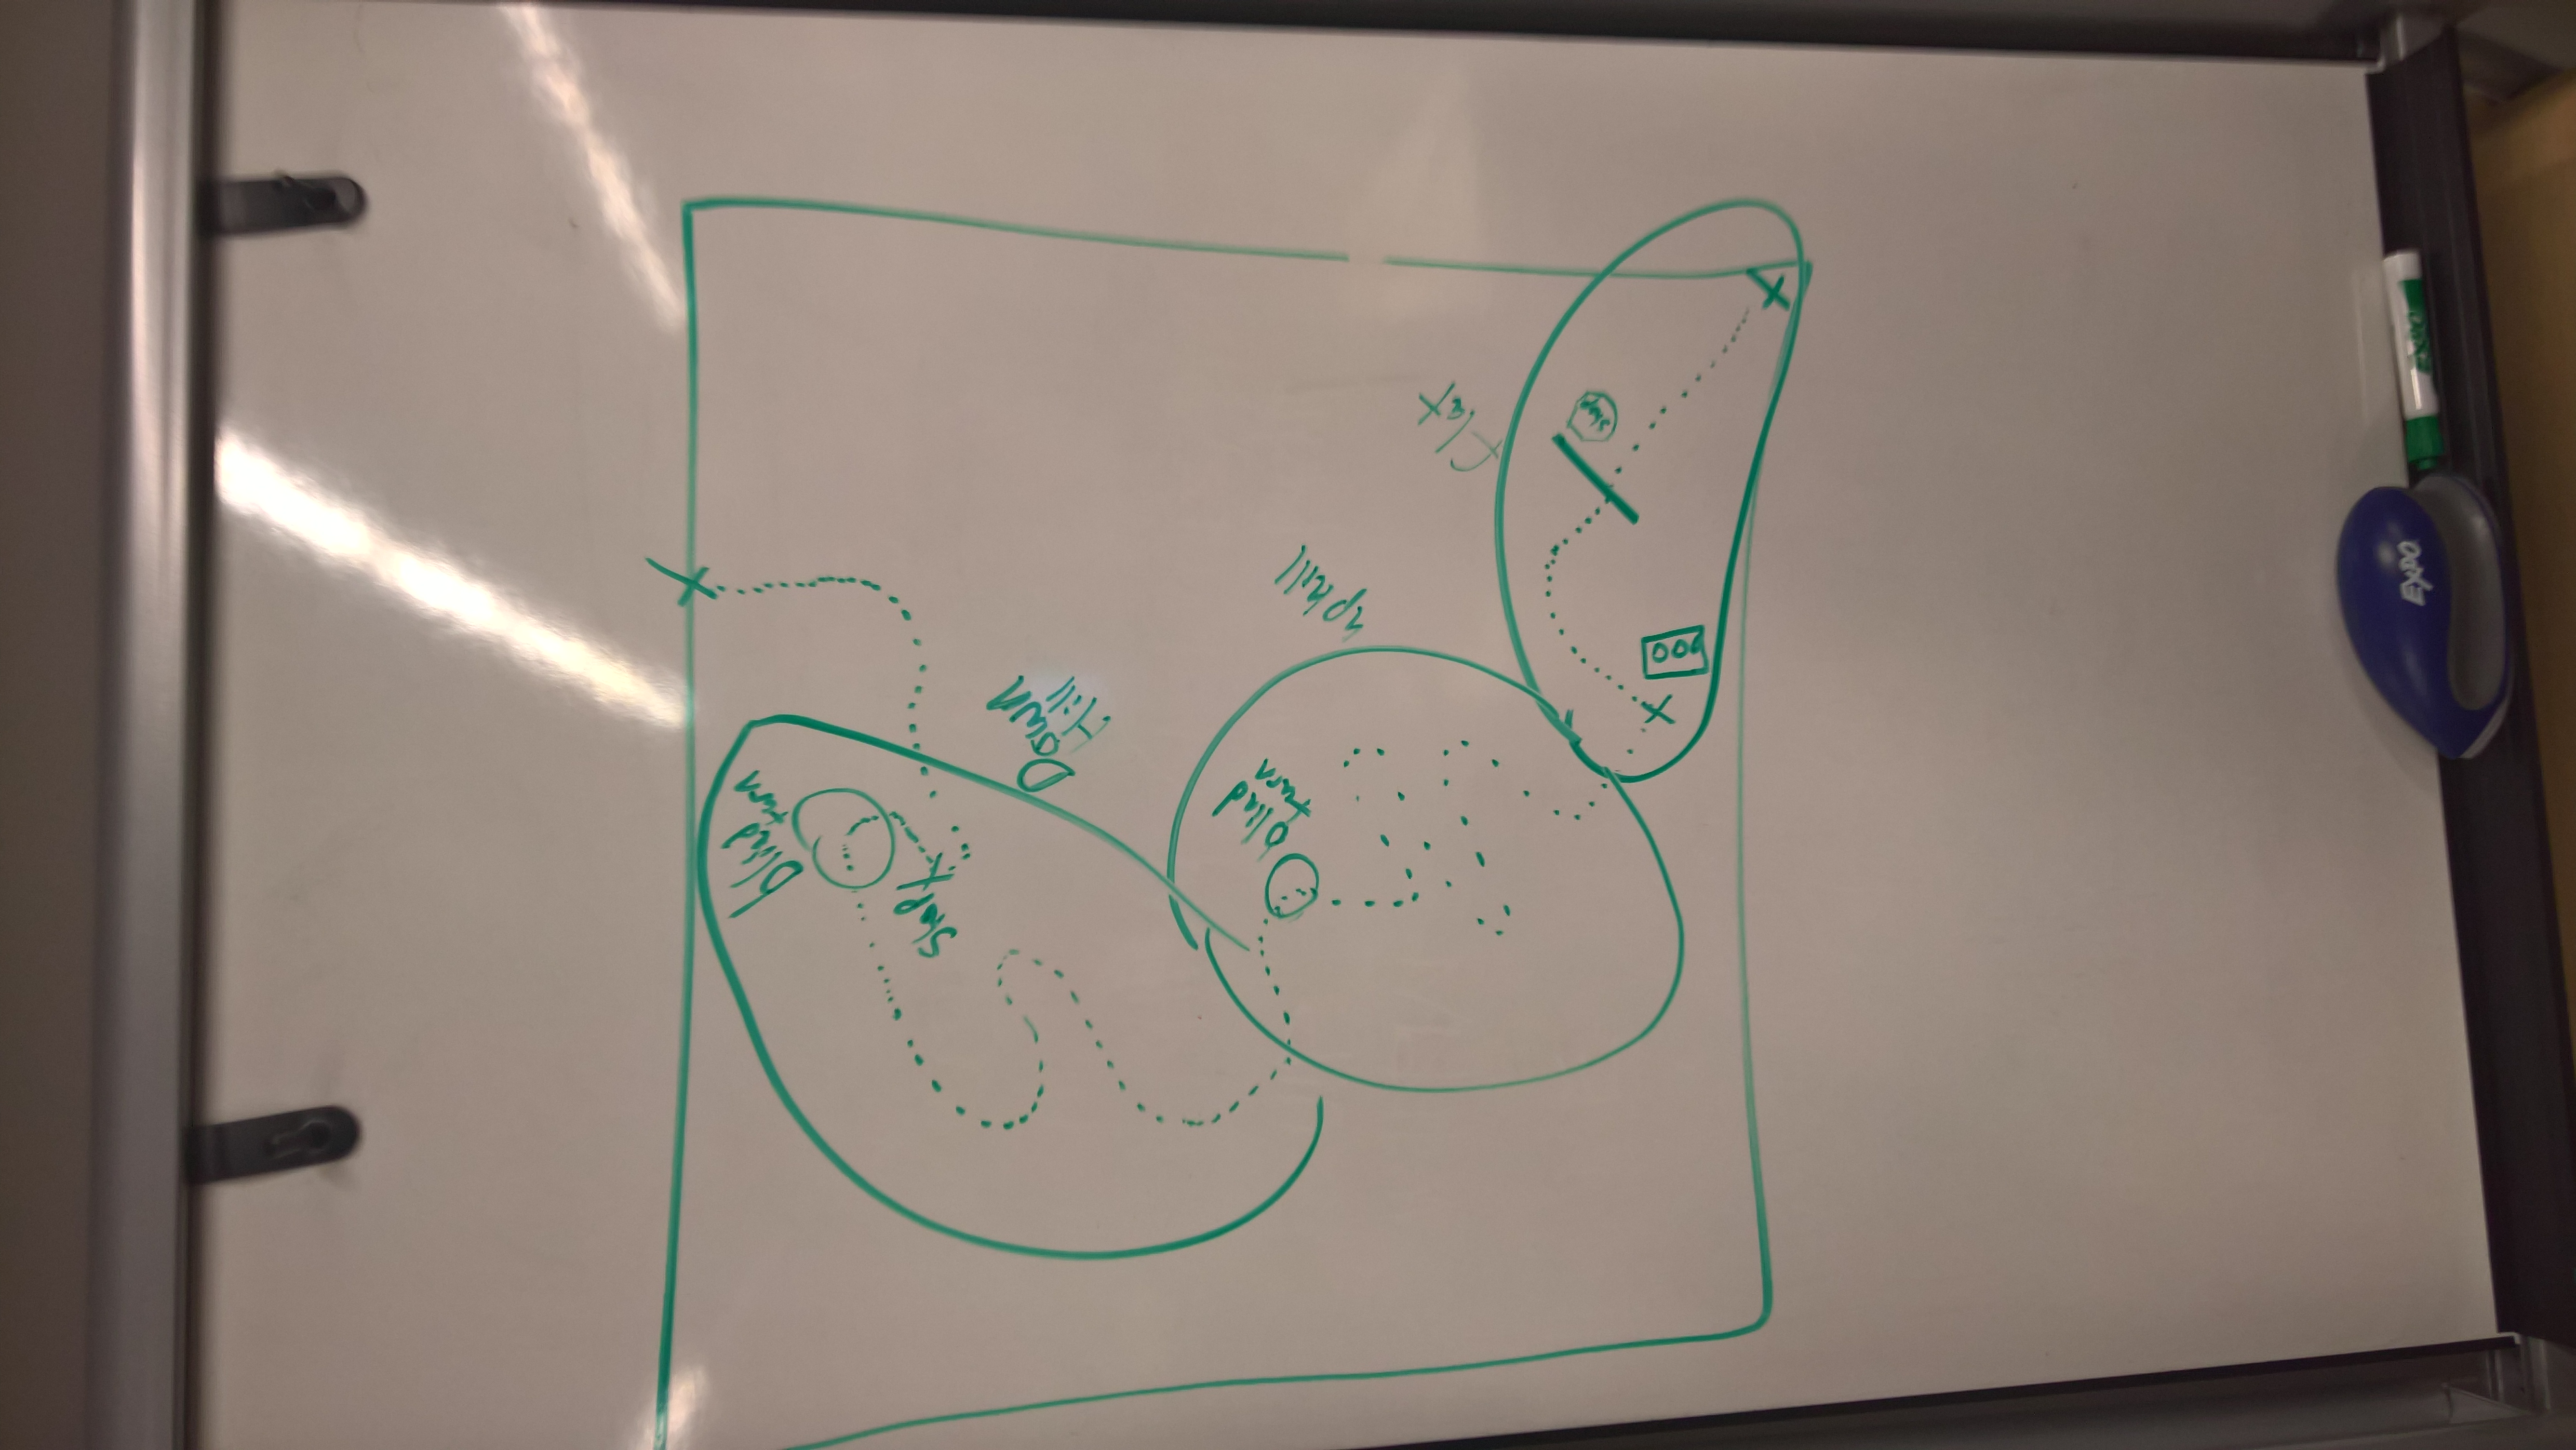 blind
turn
stop
Down
Hill
blind
turn
uphill
flat
stop
EXPO
EXPO